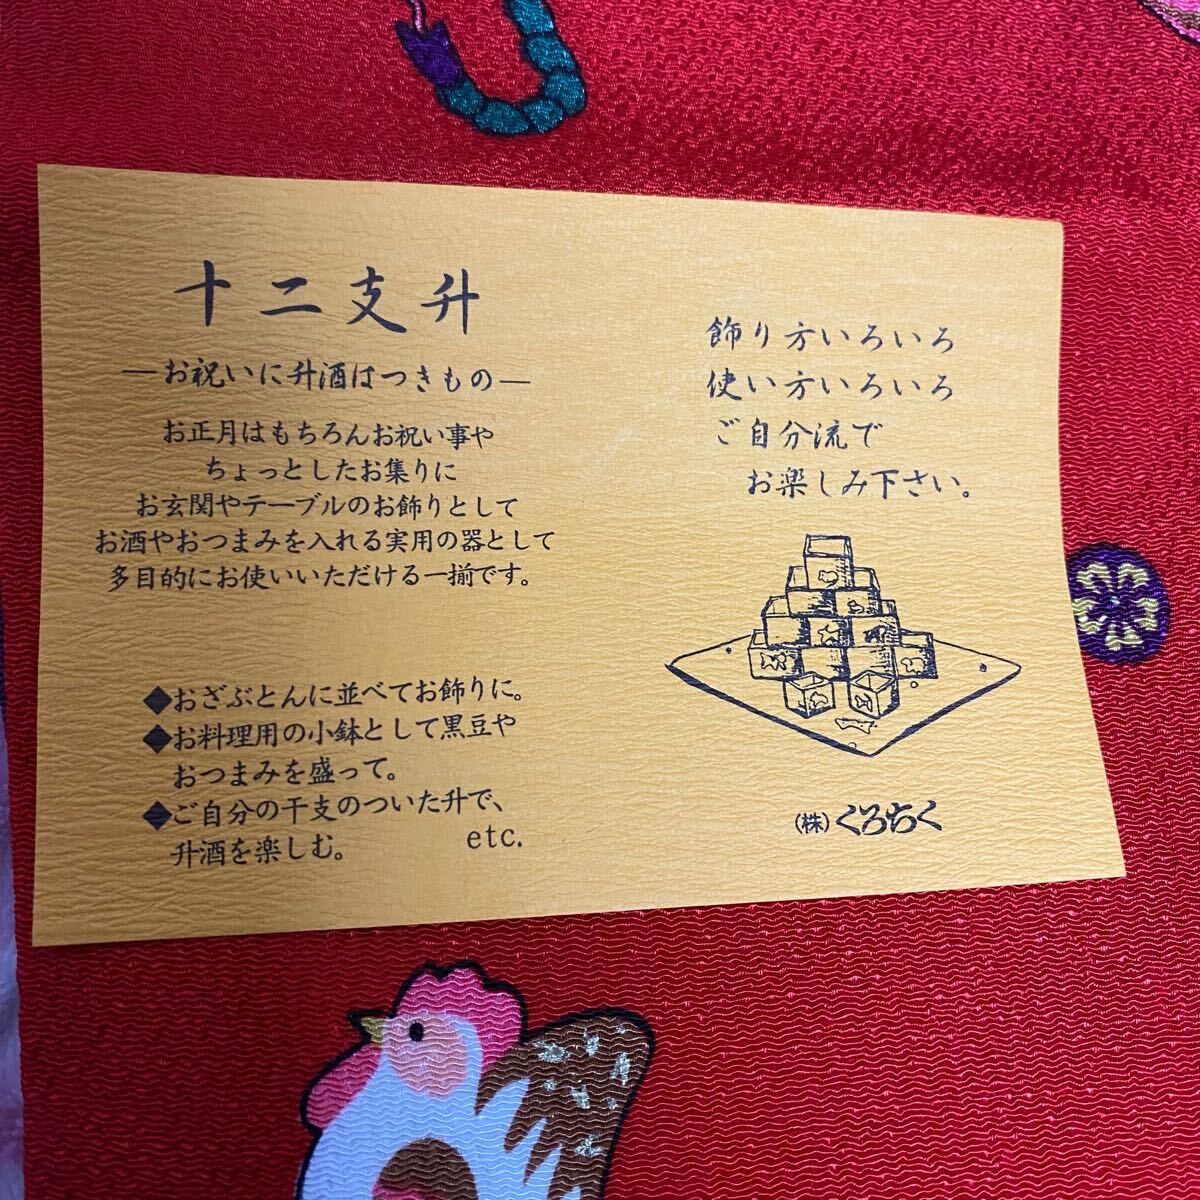 十二支升
―お祝いに升酒はつきもの―
お正月はもちろんお祝い事や
ちょっとしたお集りに
お玄関やテーブルのお飾りとして
お酒やおつまみを入れる実用の器として
多目的にお使いいただける一揃です。
◆おざぶとんに並べてお飾りに。
◆お料理用の小鉢として黒豆や
おつまみを盛って。
◆ご自分の干支のついた升で、
升酒を楽しむ。 etc.
飾り方いろいろ
使い方いろいろ
ご自分流で
お楽しみ下さい。
(株)くろちく